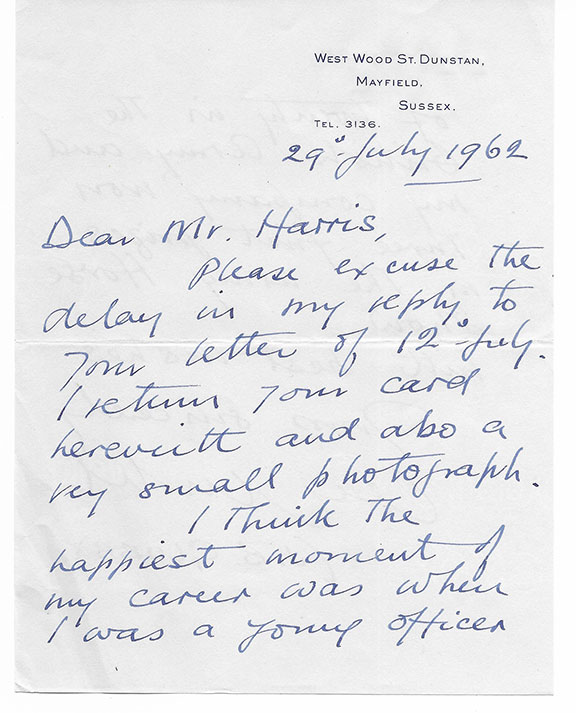 WEST WOOD ST. DUNSTAN,
MAYFIELD,
SUSSEX.
TEL. 3136.
29th July 1962
Dear Mr. Harris,
Please excuse the
delay in my reply to
your letter of 12th July.
I return your card
herewith and also a
very small photograph.
I think the
happiest moment of
my career was when
I was a young officer